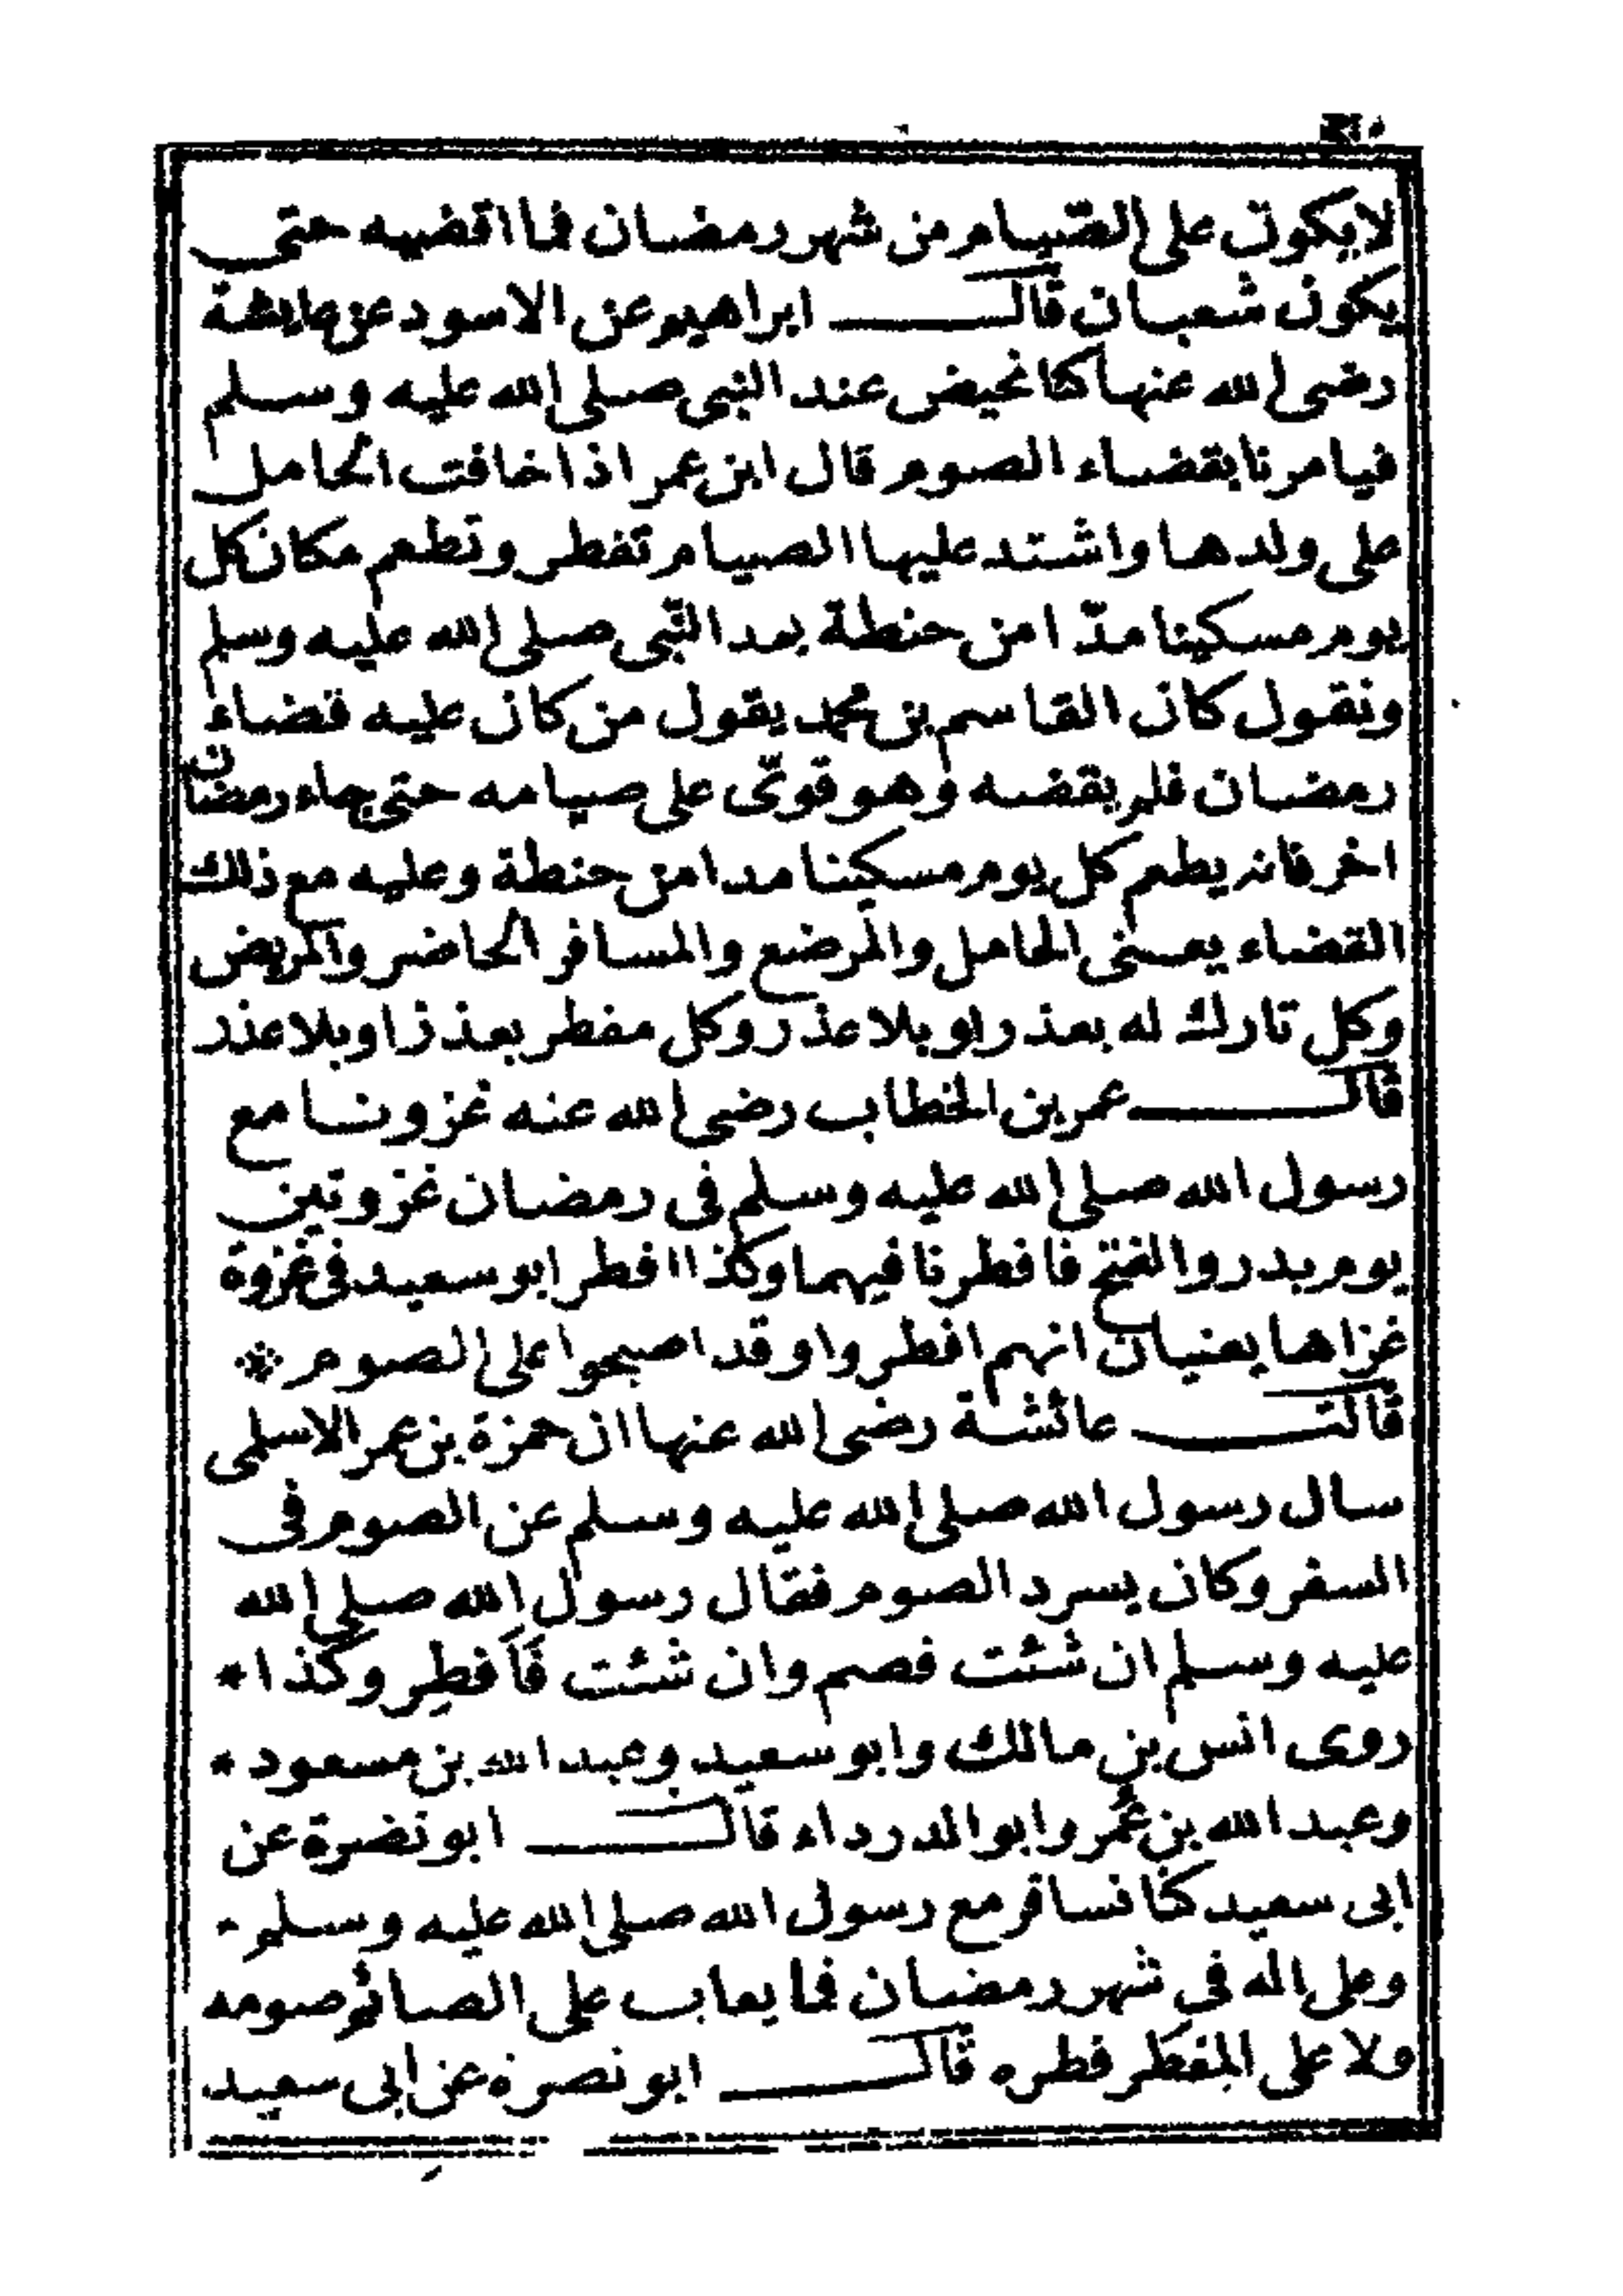 لا يكون على الصّيام من شهر رمضان فما اقضيه حتى
يكون شعبان قال ابراهيم عن الاسود عن عايشة
رضى الله عنها كنا نحيض عند النبى صلى الله عليه وسلم
فيامرنا بقضاء الصوم قال ابن عمر اذا خافت الحامل
على ولدها واشتد عليها الصيام تفطر وتطعم مكان كل
يوم مسكينا مدّا من حنطة بمد النّبى صلى الله عليه وسلم
ونقول كان القاسم بن محمد يقول من كان عليه قضاء
رمضان فلم يقضه وهو قوىّ على صيامه حتى جاء رمضان
اخر فانه يطعم كل يوم مسكينا مدا من حنطة وعليه مع ذلك
القضاء يعنى الحامل والمرضع والمسافر الحاضر والمريض
وكل تارك له بعذر او بلا عذر وكل مفطر بعذر او بلا عذر
قال عمر بن الخطاب رضى الله عنه غزونا مع
رسول الله صلى الله عليه وسلم فى رمضان غزوتين
يوم بدر والفتح فافطرنا فيهما وكذا افطر ابو سعيد فى غزوة
غزاها يعنيان انهم افطروا وقد اصبحوا على الصوم *
قالت عائشة رضى الله عنها ان حمزة بن عمر الاسلمى
سال رسول الله صلى الله عليه وسلم عن الصوم فى
السفر وكان يسرد الصوم فقال رسول الله صلى الله
عليه وسلم ان شئت فصم وان شئت فَافطِر وكذا *
روى انس بن مالك وابو سعيد وعبد الله بن مسعود *
وعبد الله بن عُمر وابو الدرداء قال ابو نضرة عن
ابى سعيد كنا نسافر مع رسول الله صلى الله عليه وسلم
وعلى اله في شهر رمضان فما يعاب على الصائم صومه
ولا على المفطر فطره قال ابو نصرة عن ابى سعيد